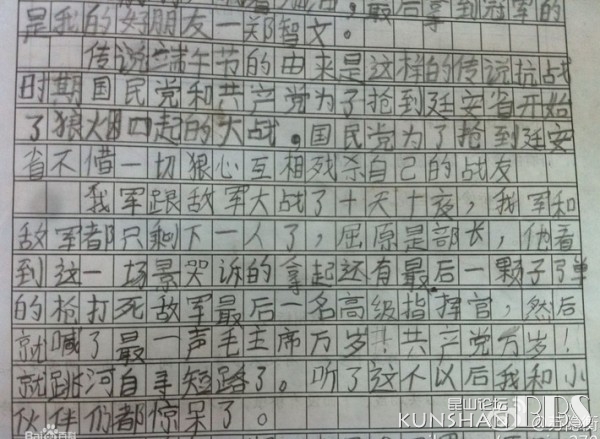 最后拿到冠军的
是我的好朋友一郑智文。
传说端午节的由来是这样的传说抗战
时期国民党和共产党为了抢到延安省开始
了狼烟四起的大战。国民党为了抢到延安
省不惜一切狠心互相残杀自己的战友
我军跟敌军大战了十天十夜，我军和
敌军都只剩下一人了，屈原是部长，他看
到这一场景哭诉的拿起还有最后一颗子弹
的枪打死敌军最后一名高级指挥官，然后
就喊了最一声毛主席万岁！共产党万岁！
就跳河自寻短路了。听了这个以后我和小
伙伴们都惊呆了。
Baidu百科
昆山论坛
KUNSHAN BBS